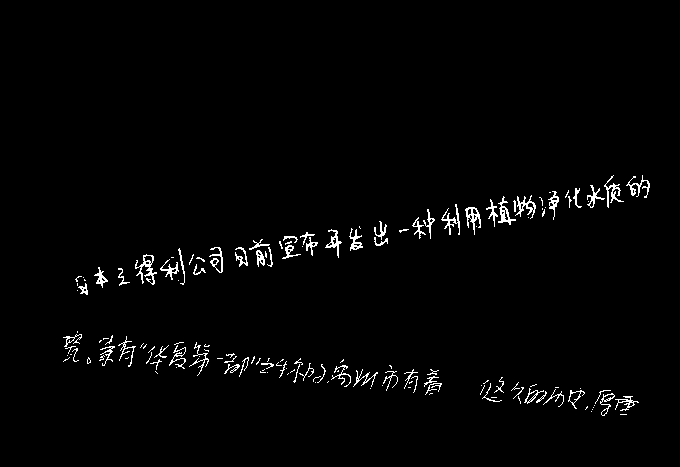 日本三得利公司日前宣布开发出一种利用植物净化水质的
览。素有“华夏第一都”之称的禹州市有着 悠久的历史,厚重